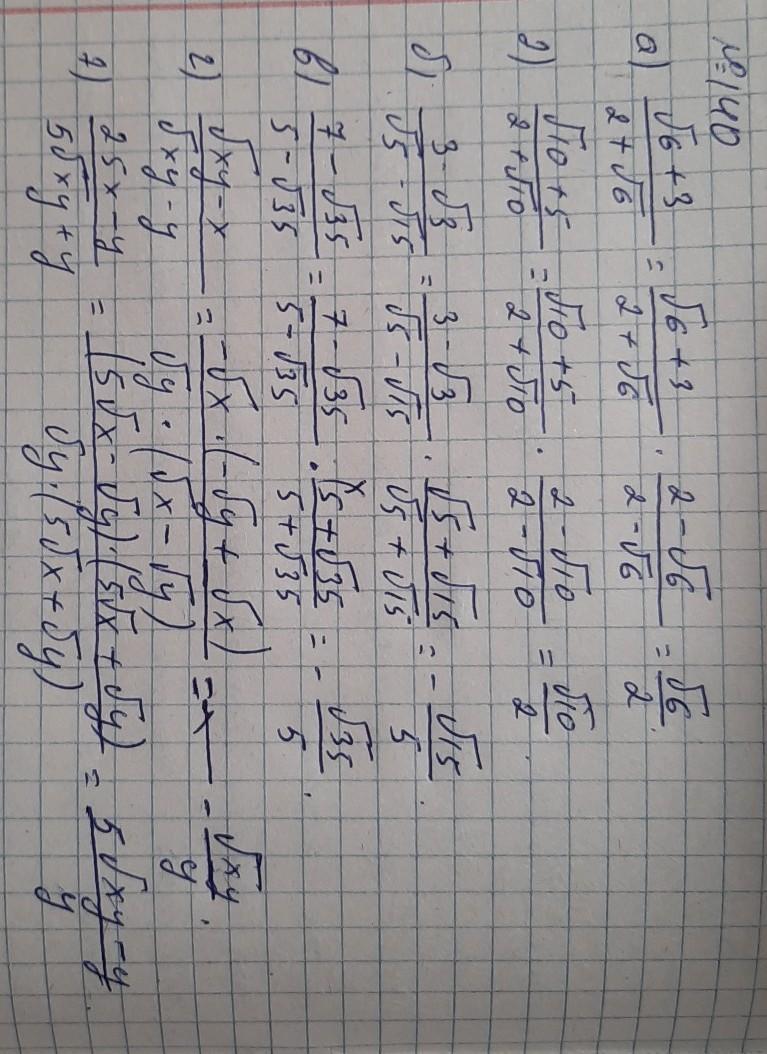 №140
а) (√6+3)/(2+√6) = (√6+3)/(2+√6) · (2-√6)/(2-√6) = √6/2.
г) (√10+5)/(2+√10) = (√10+5)/(2+√10) · (2-√10)/(2-√10) = √10/2.
б) (3-√3)/(√5-√15) = (3-√3)/(√5-√15) · (√5+√15)/(√5+√15) = -√15/5.
в) (7-√35)/(5-√35) = (7-√35)/(5-√35) · (5+√35)/(5+√35) = -√35/5.
г) (√xy-x)/(√xy-y) = (-√x·(-√y+√x))/(√y·(√x-√y)) = -√xy/y.
1) (25x-y)/(5√xy+y) = ((5√x-√y)·(5√x+√y))/(√y·(5√x+√y)) = (5√xy-y)/y